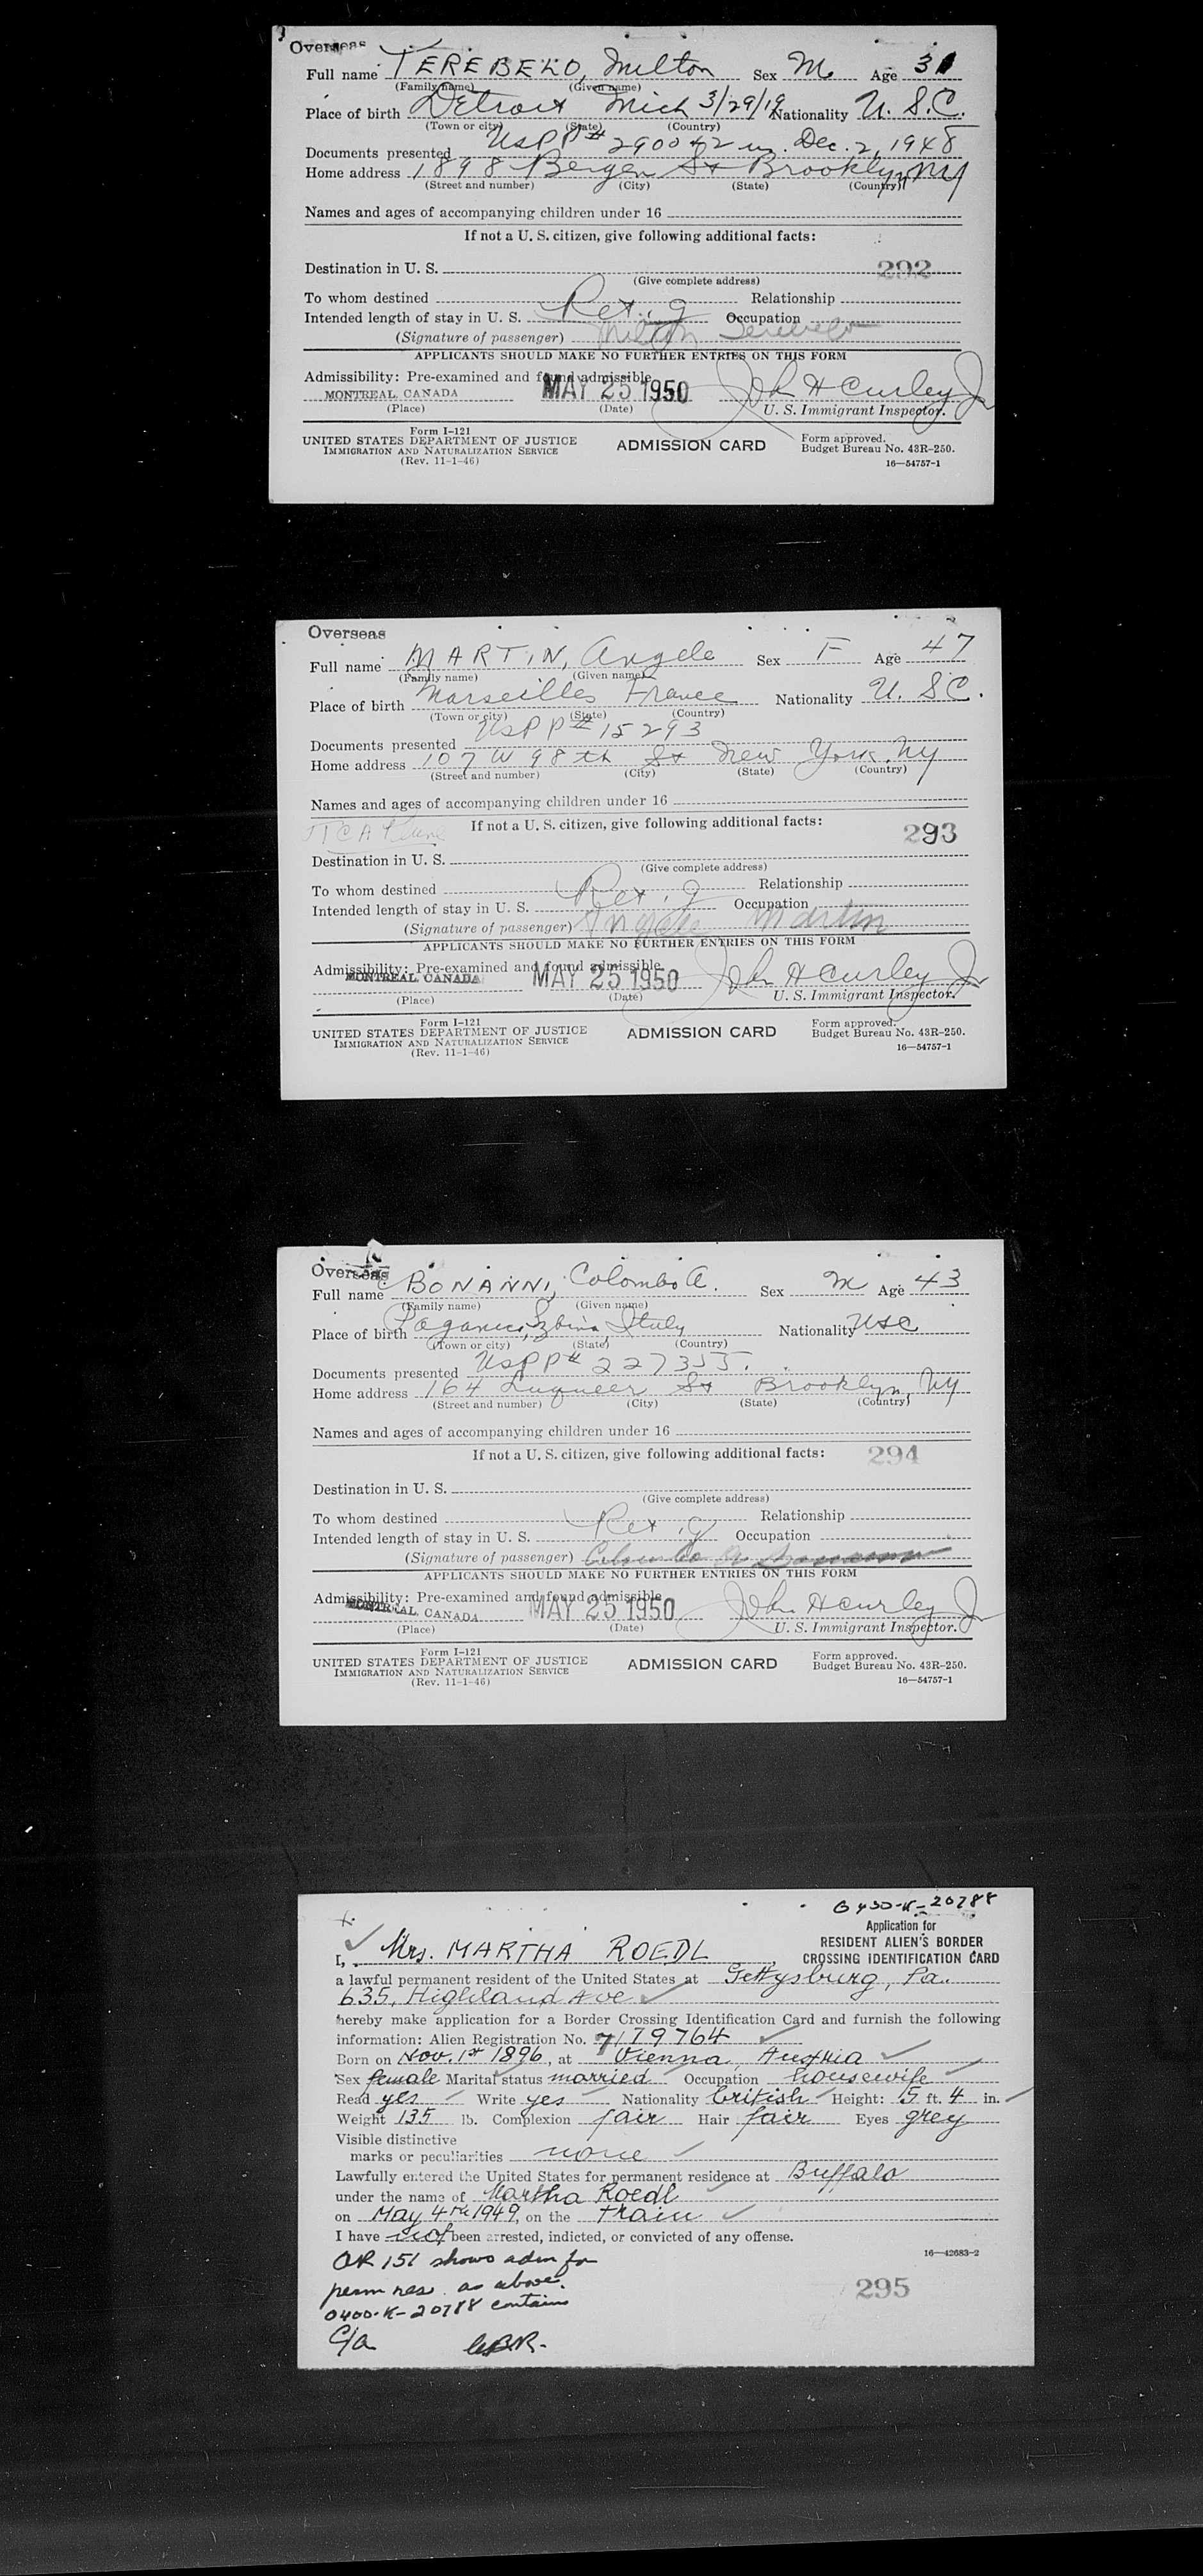 Overseas
Full name TEREBELO, Milton Sex M. Age 31
(Family name) (Given name)
Place of birth Detroit Mich 3/29/19 Nationality U. S. C.
(Town or city) (State) (Country)
Documents presented USPP# 290042 Dec. 2, 1948
Home address 1898 Bergen St Brooklyn NY
(Street and number) (City) (State) (Country)
Names and ages of accompanying children under 16
If not a U. S. citizen, give following additional facts:
Destination in U. S. 292
(Give complete address)
To whom destined Relationship
Intended length of stay in U. S. Occupation
(Signature of passenger) Milton
APPLICANTS SHOULD MAKE NO FURTHER ENTRIES ON THIS FORM
Admissibility: Pre-examined and found admissible
MONTREAL, CANADA MAY 25 1950 John H Curley Jr
(Place) (Date) U. S. Immigrant Inspector.
Form I-121
UNITED STATES DEPARTMENT OF JUSTICE ADMISSION CARD Form approved.
IMMIGRATION AND NATURALIZATION SERVICE Budget Bureau No. 43R-250.
(Rev. 11-1-46) 16—54757-1
Overseas
Full name MARTIN, Angele Sex F Age 47
(Family name) (Given name)
Place of birth Marseilles France Nationality U. S. C.
(Town or city) (State) (Country)
Documents presented USPP# 15293
Home address 107 W 98th St New York, NY
(Street and number) (City) (State) (Country)
Names and ages of accompanying children under 16
If not a U. S. citizen, give following additional facts: 293
Destination in U. S.
(Give complete address)
To whom destined Relationship
Intended length of stay in U. S. Occupation
(Signature of passenger) Angele Martin
APPLICANTS SHOULD MAKE NO FURTHER ENTRIES ON THIS FORM
Admissibility: Pre-examined and found admissible
MONTREAL CANADA MAY 25 1950 John H Curley Jr
(Place) (Date) U. S. Immigrant Inspector.
Form I-121
UNITED STATES DEPARTMENT OF JUSTICE ADMISSION CARD Form approved.
IMMIGRATION AND NATURALIZATION SERVICE Budget Bureau No. 43R-250.
(Rev. 11-1-46) 16—54757-1
Overseas
Full name BONANNI, Colombo A. Sex M Age 43
(Family name) (Given name)
Place of birth Italy Nationality USC
(Town or city) (State) (Country)
Documents presented USPP# 227355.
Home address 164 Luqueer St Brooklyn, NY
(Street and number) (City) (State) (Country)
Names and ages of accompanying children under 16
If not a U. S. citizen, give following additional facts: 294
Destination in U. S.
(Give complete address)
To whom destined Relationship
Intended length of stay in U. S. Occupation
(Signature of passenger) Colombo A
APPLICANTS SHOULD MAKE NO FURTHER ENTRIES ON THIS FORM
Admissibility: Pre-examined and found admissible
MONTREAL, CANADA MAY 25 1950 John H Curley Jr
(Place) (Date) U. S. Immigrant Inspector.
Form I-121
UNITED STATES DEPARTMENT OF JUSTICE ADMISSION CARD Form approved.
IMMIGRATION AND NATURALIZATION SERVICE Budget Bureau No. 43R-250.
(Rev. 11-1-46) 16—54757-1
0400-K-20788
Application for
RESIDENT ALIEN'S BORDER
CROSSING IDENTIFICATION CARD
I, Mrs. MARTHA ROEDL
a lawful permanent resident of the United States at Gettysburg, Pa.
635, Highland Ave
hereby make application for a Border Crossing Identification Card and furnish the following
information: Alien Registration No. 7179764
Born on Nov. 1st 1896, at Vienna, Austria
Sex female Marital status married Occupation housewife
Read yes Write yes Nationality British Height: 5 ft. 4 in.
Weight 135 lb. Complexion fair Hair fair Eyes grey
Visible distinctive
marks or peculiarities none
Lawfully entered the United States for permanent residence at Buffalo
under the name of Martha Roedl
on May 4th 1949, on the train
I have not been arrested, indicted, or convicted of any offense.
16—42683-2
AR 151 shows adm for
perm res. as above.
0400-K-20788 contains
295